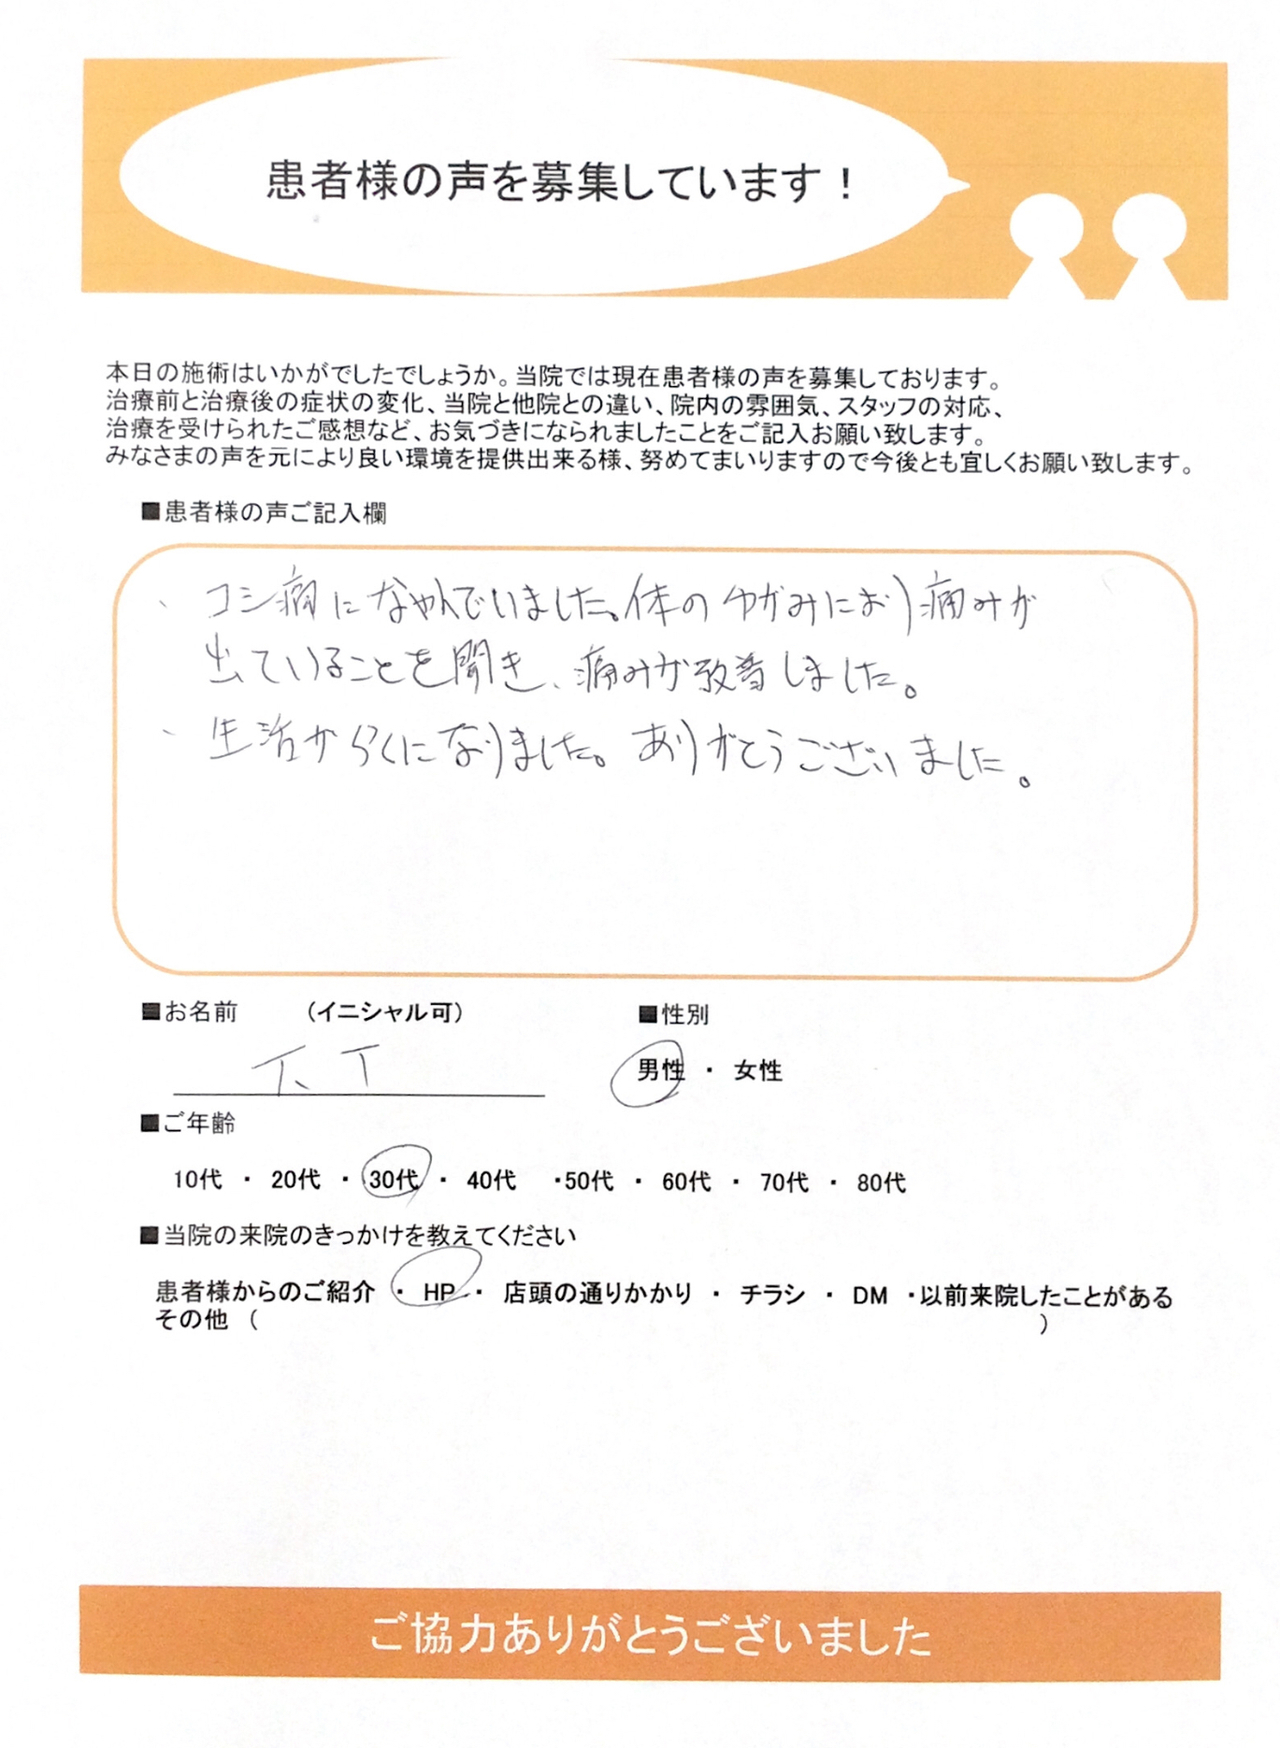 患者様の声を募集しています！
本日の施術はいかがでしたでしょうか。当院では現在患者様の声を募集しております。
治療前と治療後の症状の変化、当院と他院との違い、院内の雰囲気、スタッフの対応、
治療を受けられたご感想など、お気づきになられましたことをご記入お願い致します。
みなさまの声を元により良い環境を提供出来る様、努めてまいりますので今後とも宜しくお願い致します。
■患者様の声ご記入欄
、コシ痛になやんでいました。体のゆがみにより痛みが
出ていることを聞き、痛みが改善しました。
、生活がらくになりました。ありがとうございました。
■お名前 （イニシャル可） ■性別
T、T 男性 ・ 女性
■ご年齢
10代 ・ 20代 ・ 30代 ・ 40代 ・50代 ・ 60代 ・ 70代 ・ 80代
■当院の来院のきっかけを教えてください
患者様からのご紹介 ・ HP ・ 店頭の通りかかり ・ チラシ ・ DM ・以前来院したことがある
その他 （ ）
ご協力ありがとうございました